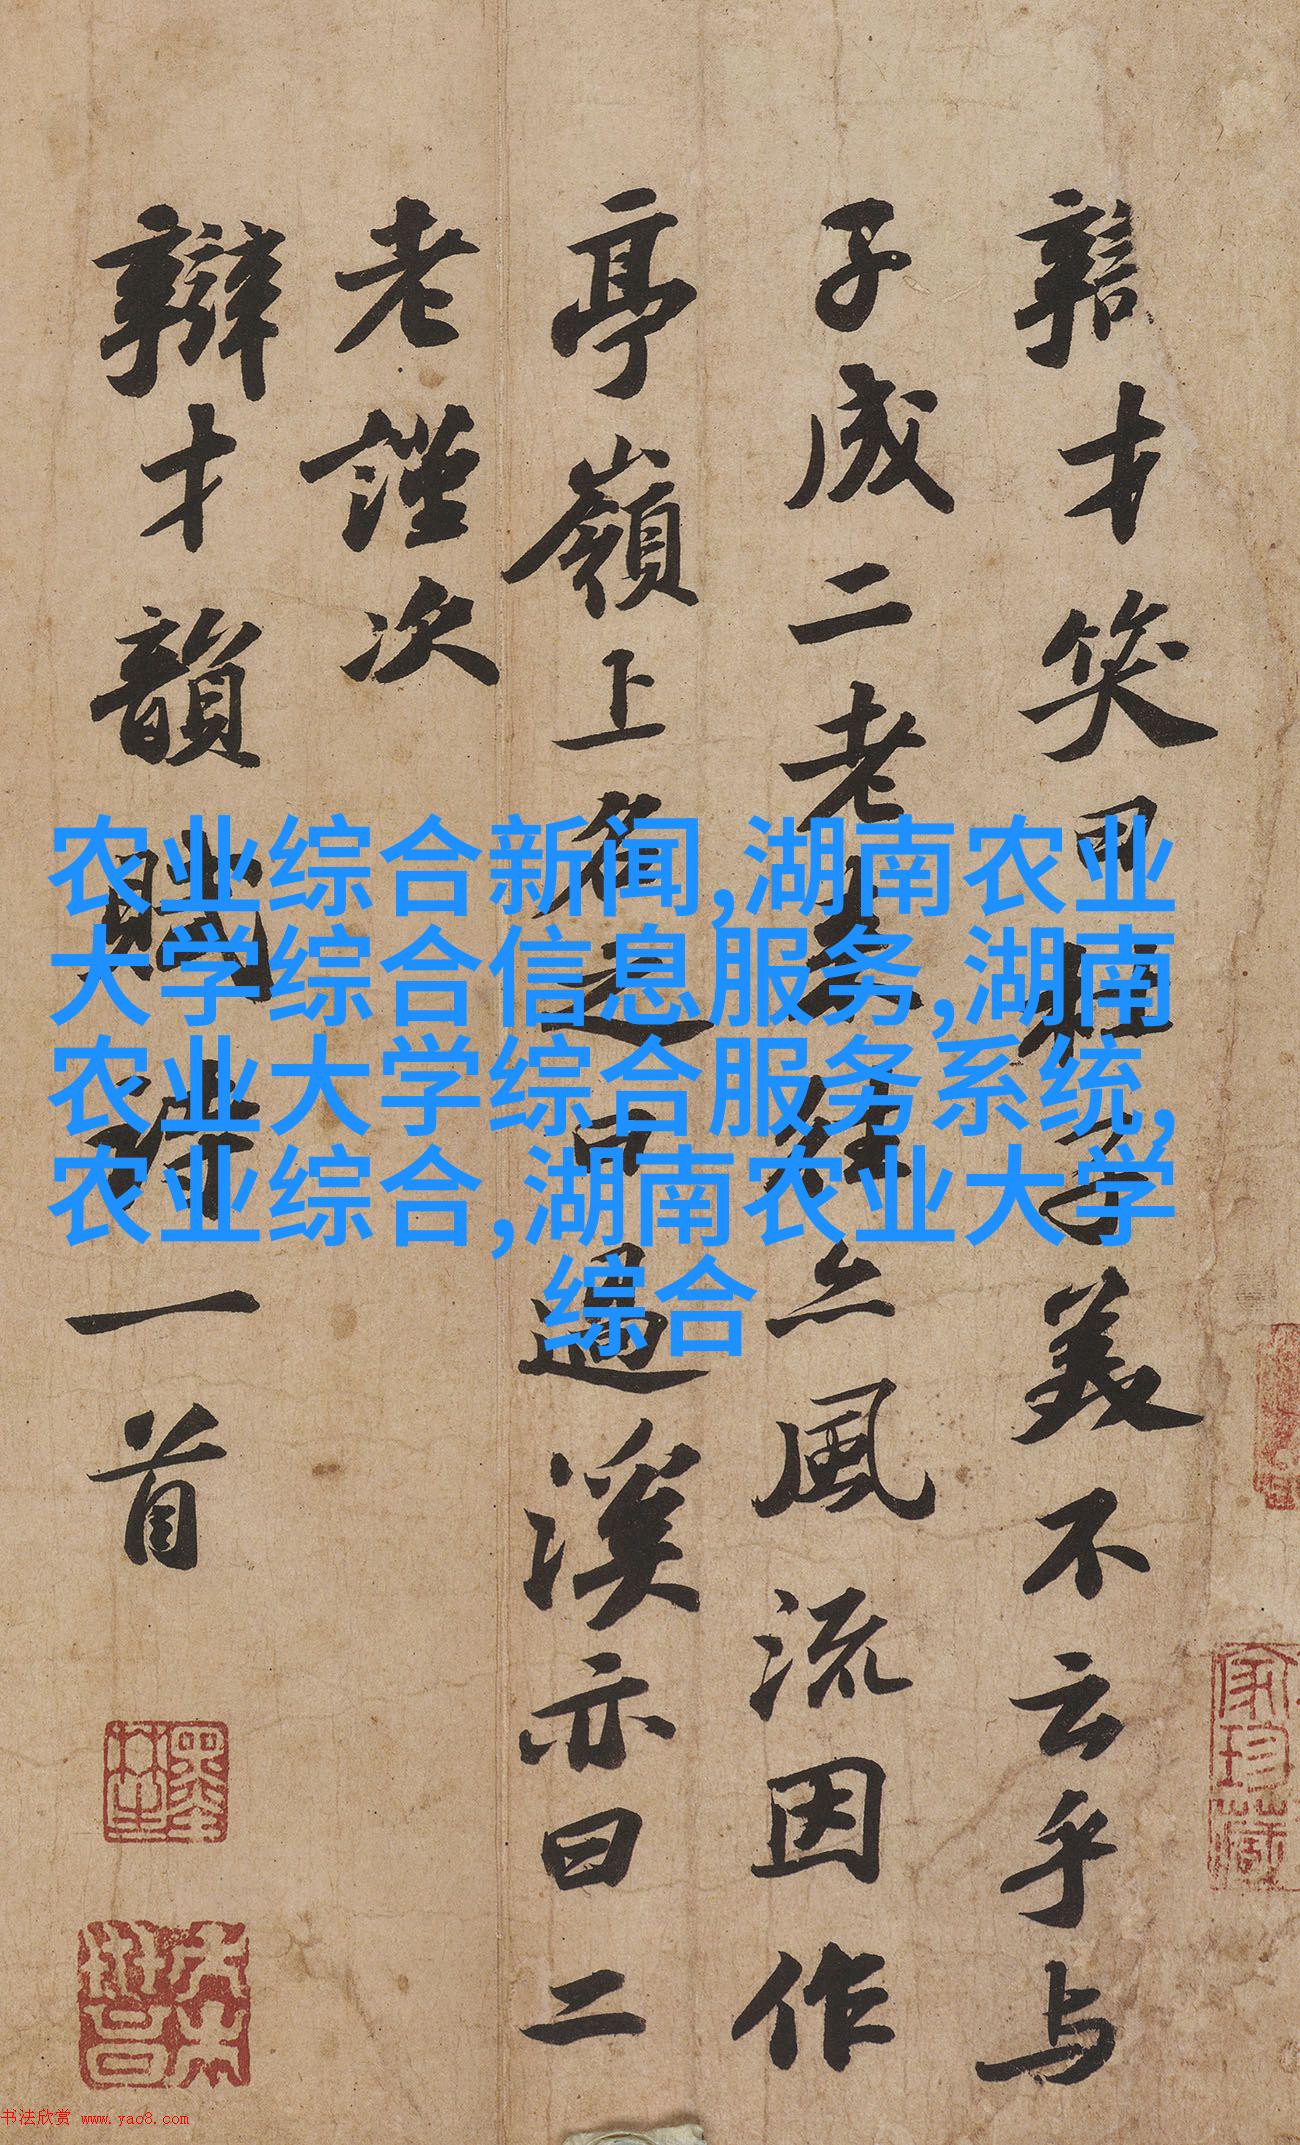 辯才笑曰杜子美不云乎与
子成二老來往亦風流因作
亭嶺上名之曰過溪亦曰二
老謹次
辯才韻賦詩一首
农业综合新闻,湖南农业
大学综合信息服务,湖南
农业大学综合服务系统,
农业综合,湖南农业大学
综合
家珍藏
书法欣赏 www.yac8.com